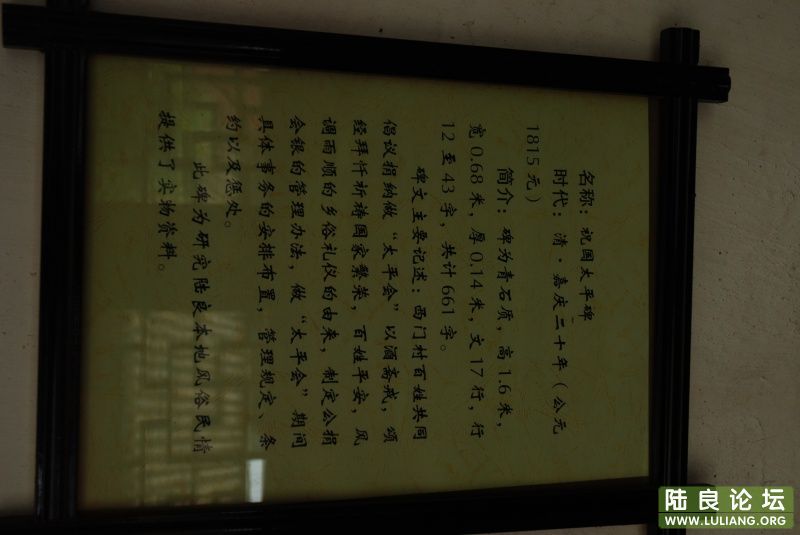 名称：祝国太平碑
时代：清·嘉庆二十年（公元
1815元）
简介：碑为青石质，高1.6米，
宽0.68米，厚0.14米，文17行，行
12至43字，共计661字。
碑文主要记述：西门村百姓共同
倡议捐纳做“太平会”以酒斋戒，颂
经拜忏祈祷国家繁荣，百姓平安，风
调雨顺的乡俗礼仪的由来，制定公捐
会银的管理办法，做“太平会”期间
具体事务的安排布置，管理规定、条
约以及惩处。
此碑为研究陆良本地风俗民情
提供了实物资料。
陆良论坛
WWW.LULIANG.ORG